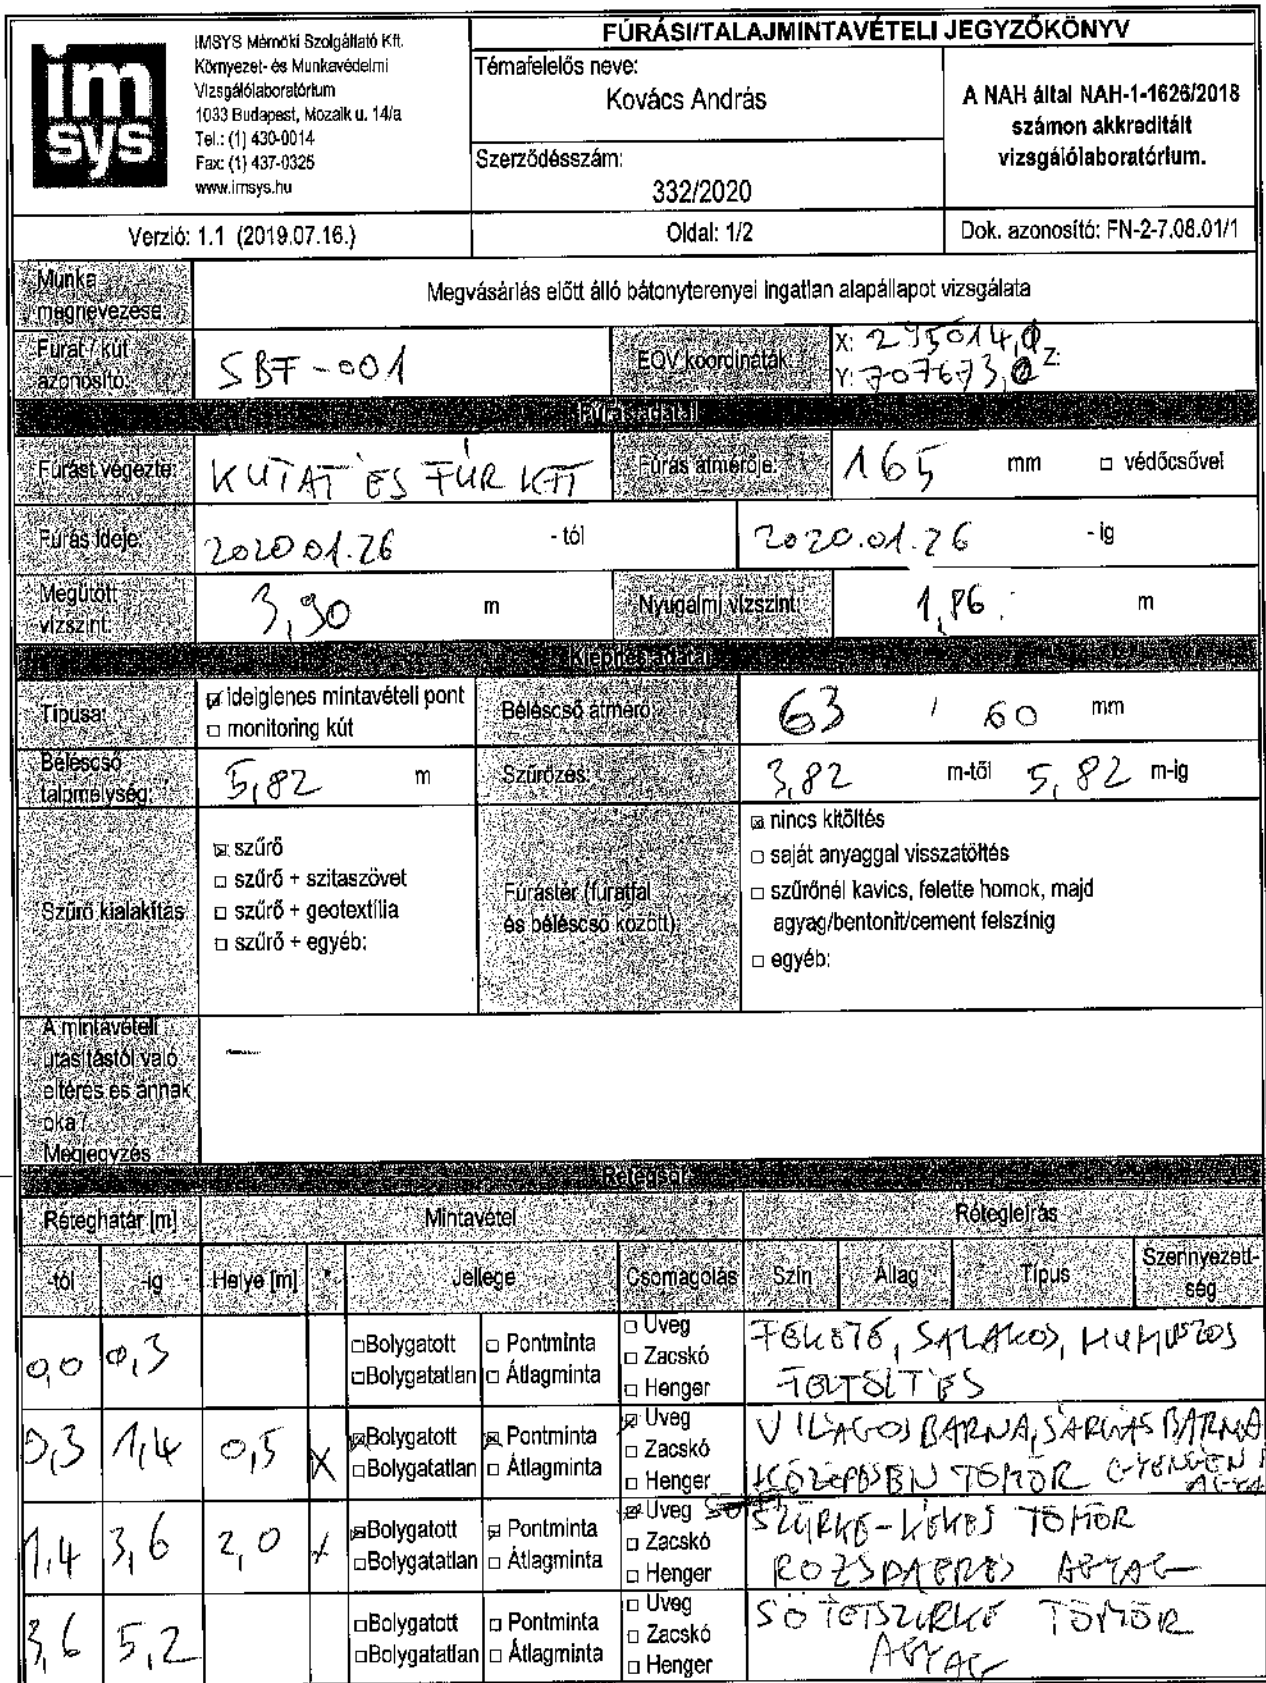 im
sys
IMSYS Mérnöki Szolgáltató Kft.
Környezet- és Munkavédelmi
Vizsgálólaboratórium
1033 Budapest, Mozaik u. 14/a
Tel.: (1) 430-0014
Fax: (1) 437-0325
www.imsys.hu
FÚRÁSI/TALAJMINTAVÉTELI JEGYZŐKÖNYV
Témafelelős neve:
Kovács András
Szerződésszám:
332/2020
A NAH által NAH-1-1626/2018
számon akkreditált
vizsgálólaboratórium.
Verzió: 1.1 (2019.07.16.)
Oldal: 1/2
Dok. azonosító: FN-2-7.08.01/1
Munka
megnevezése:
Megvásárlás előtt álló bátonyterenyei ingatlan alapállapot vizsgálata
Furat / kút
azonosító:
SBF-001
EOV koordináták
X: 295014,0
Y: 707673,0
Z:
Fúrás adatai
Fúrást végezte:
KUTAT ÉS FÚR KFT
Fúrás átmérője:
165 mm □ védőcsővel
Fúrás ideje:
2020.01.26 - tól
2020.01.26 - ig
Megütött
vízszint:
3,90 m
Nyugalmi vízszint:
1,86 m
Kiépítés adatai
Típusa:
☒ ideiglenes mintavételi pont
□ monitoring kút
Béléscső átmérő:
63 / 60 mm
Béléscső
talpmélység:
5,82 m
Szűrőzés:
3,82 m-től 5,82 m-ig
Szűrő kialakítás
☒ szűrő
□ szűrő + szitaszövet
□ szűrő + geotextília
□ szűrő + egyéb:
Fúrástér (furatfal
és béléscső között)
☒ nincs kitöltés
□ saját anyaggal visszatöltés
□ szűrőnél kavics, felette homok, majd
agyag/bentonit/cement felszínig
□ egyéb:
A mintavételi
utasítástól való
eltérés és annak
oka /
Megjegyzés
—
Rétegsor
Réteghatár [m] Mintavétel Rétegleírás
-tól -ig Helye [m] * Jellege Csomagolás Szín Állag Típus Szennyezett-
ség
0,0 0,3
□Bolygatott □ Pontminta
□Bolygatatlan □ Átlagminta
□ Üveg
□ Zacskó
□ Henger
FEKETE, SALAKOS, HUMUSZOS
FELTÖLTÉS
0,3 1,4 0,5 X
☒Bolygatott ☒ Pontminta
□Bolygatatlan □ Átlagminta
☒ Üveg
□ Zacskó
□ Henger
VILÁGOSBARNA, SÁRGÁSBARNA
KÖZEPESEN TÖMÖR GYENGÉN
1,4 3,6 2,0 X
☒Bolygatott ☒ Pontminta
□Bolygatatlan □ Átlagminta
☒ Üveg
□ Zacskó
□ Henger
SZÜRKE-KÉKES TÖMÖR
ROZSDAERES AGYAG
3,6 5,2
□Bolygatott □ Pontminta
□Bolygatatlan □ Átlagminta
□ Üveg
□ Zacskó
□ Henger
SÖTÉTSZÜRKE TÖMÖR
AGYAG